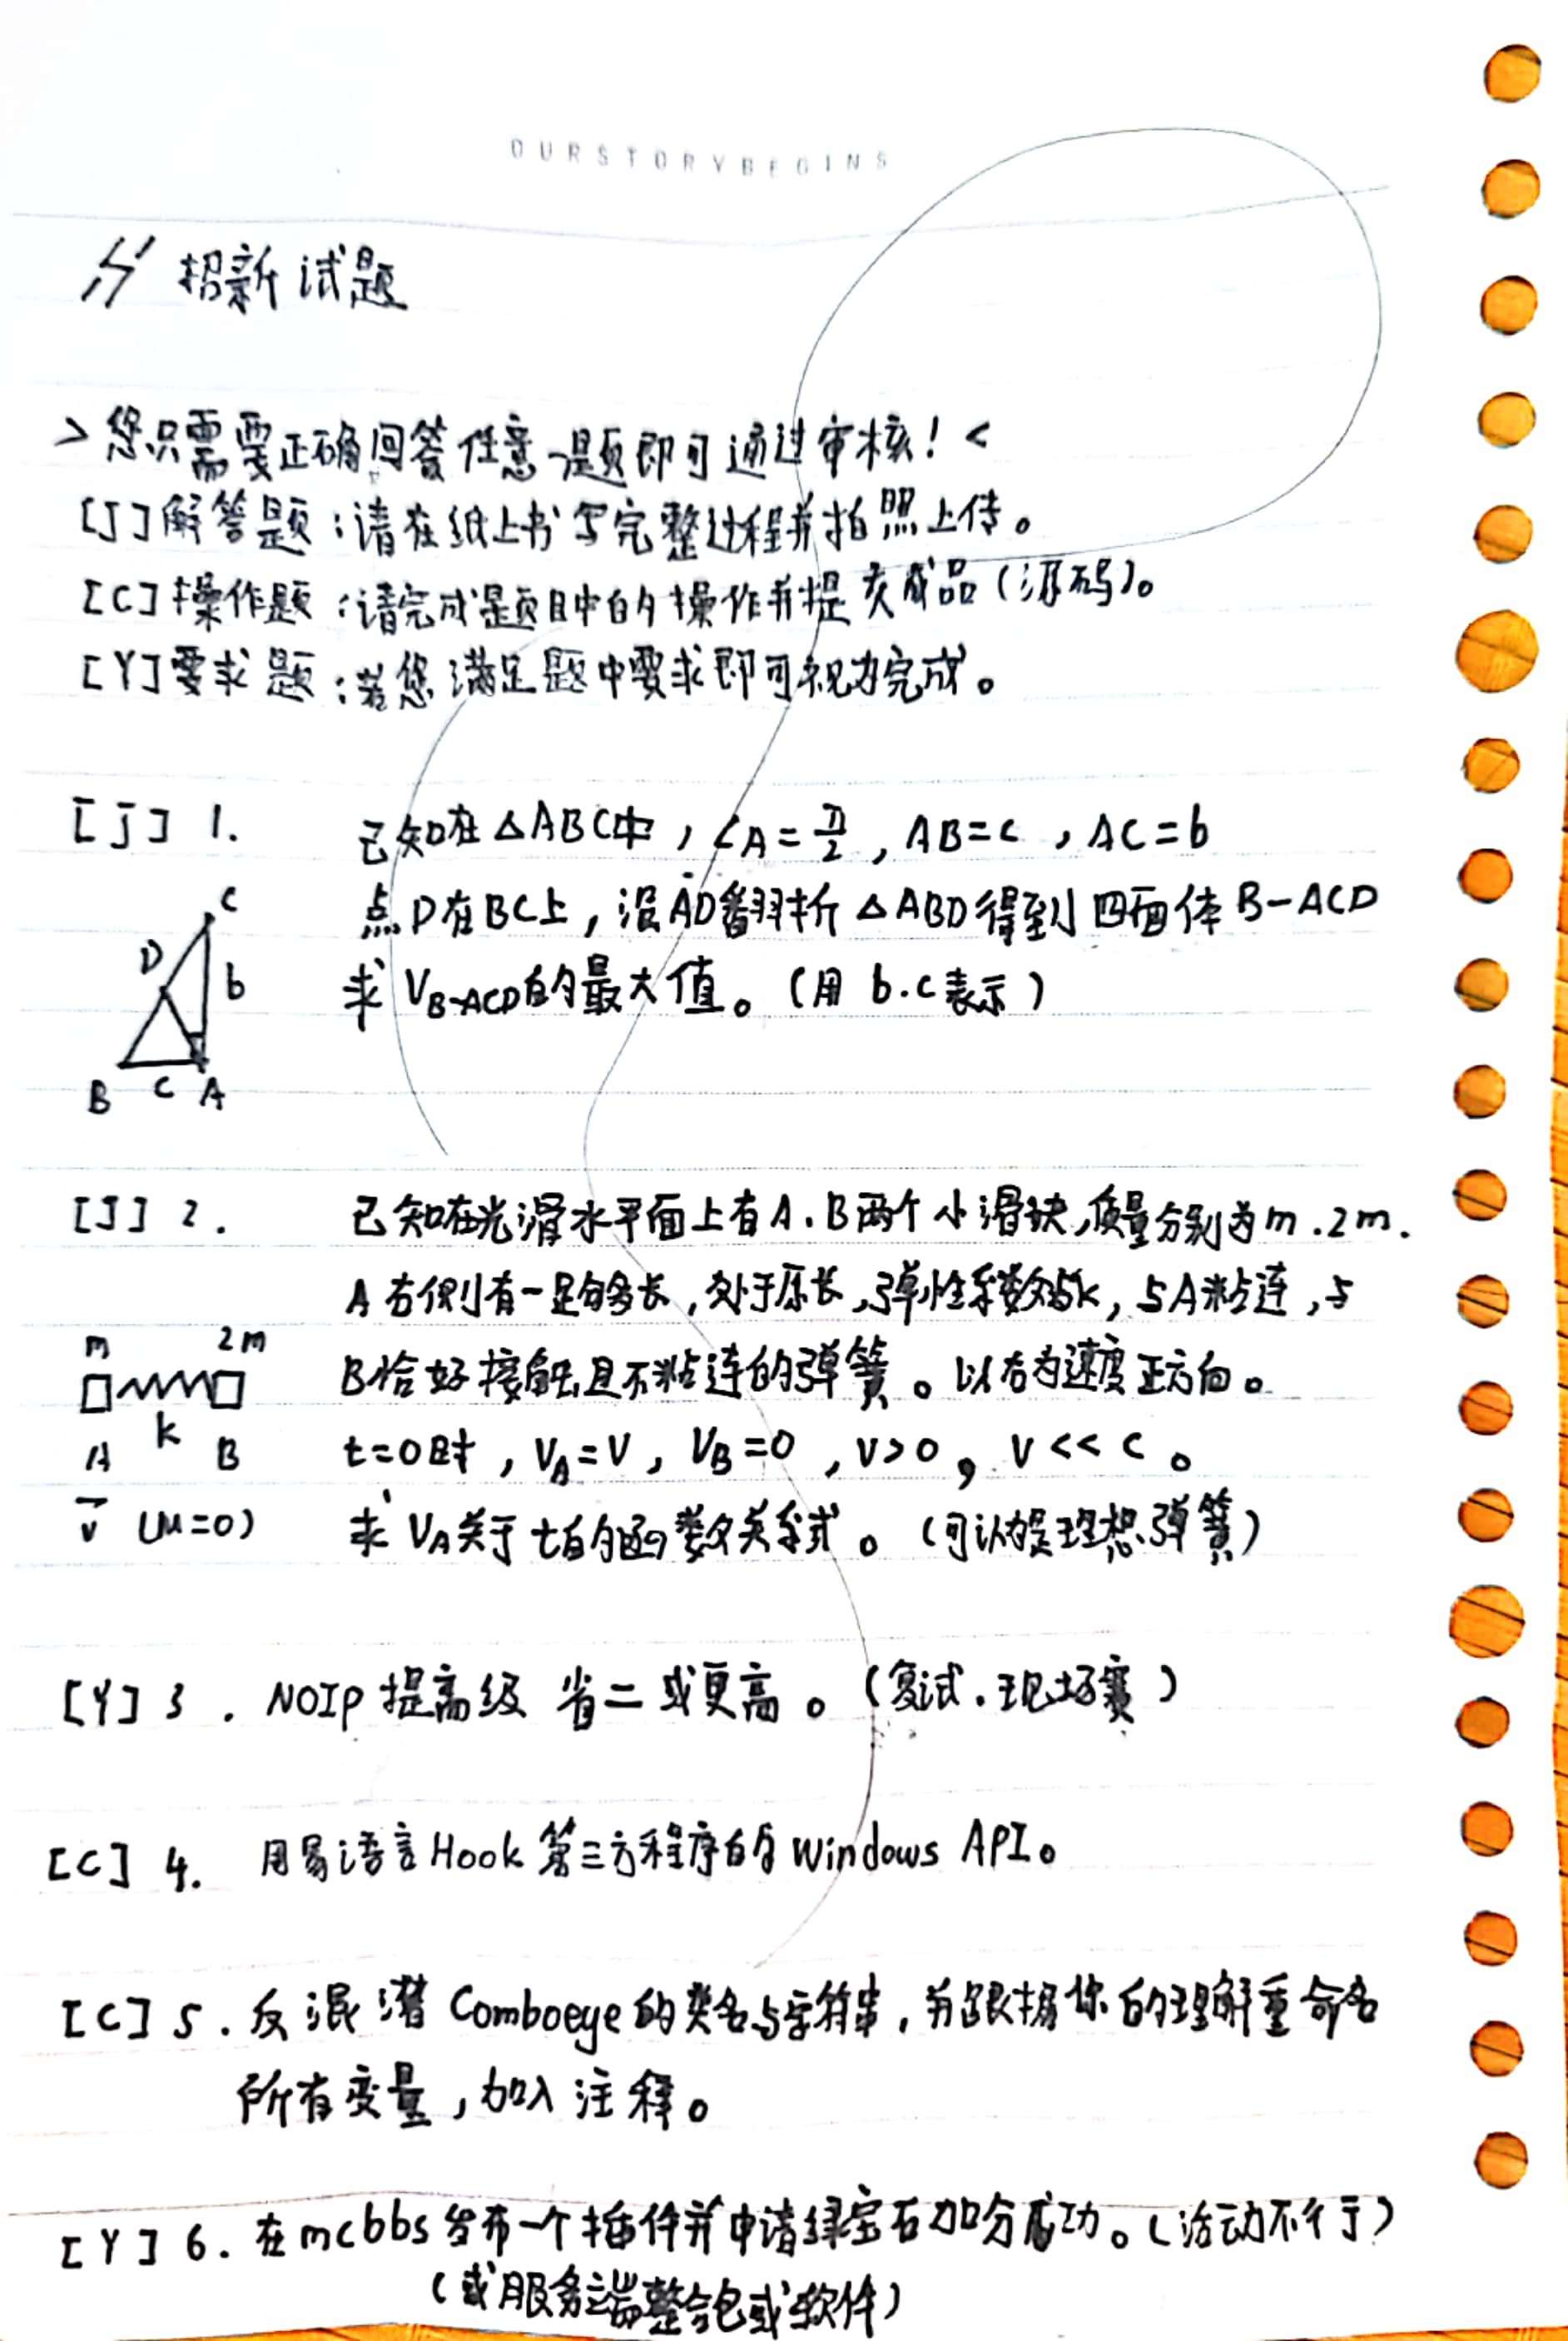 OURSTORYBEGINS
招新试题
>您只需要正确回答任意一题即可通过审核!<
[J]解答题:请在纸上书写完整过程并拍照上传。
[C]操作题:请完成题目中的操作并提交成品(源码)。
[Y]要求题:若您满足题中要求即可视为完成。
[J] 1. 已知在△ABC中,∠A=π/2,AB=c,AC=b
点D在BC上,沿AD翻折△ABD得到四面体B-ACD
求V_B-ACD的最大值。(用b.c表示)
C
D
b
B c A
[J] 2. 已知在光滑水平面上有A.B两个小滑块,质量分别为m.2m.
A右侧有一足够长,处于原长,弹性系数为k,与A粘连,与
B恰好接触且不粘连的弹簧。以右为速度正方向。
t=0时,V_A=V,V_B=0,V>0,V<<c。
求V_A关于t的函数关系式。(可认为是理想弹簧)
m 2m
k
A B
v (μ=0)
[Y] 3. NOIP提高级 省二或更高。(复试.现场赛)
[C] 4. 用易语言Hook第三方程序的Windows API。
[C] 5. 反混淆Comboeye的类名与字符串,并跟据你的理解重命名
所有变量,加入注释。
[Y] 6. 在mcbbs发布一个插件并申请绿宝石加分成功。(活动不行于)
(或服务端整合包或软件)